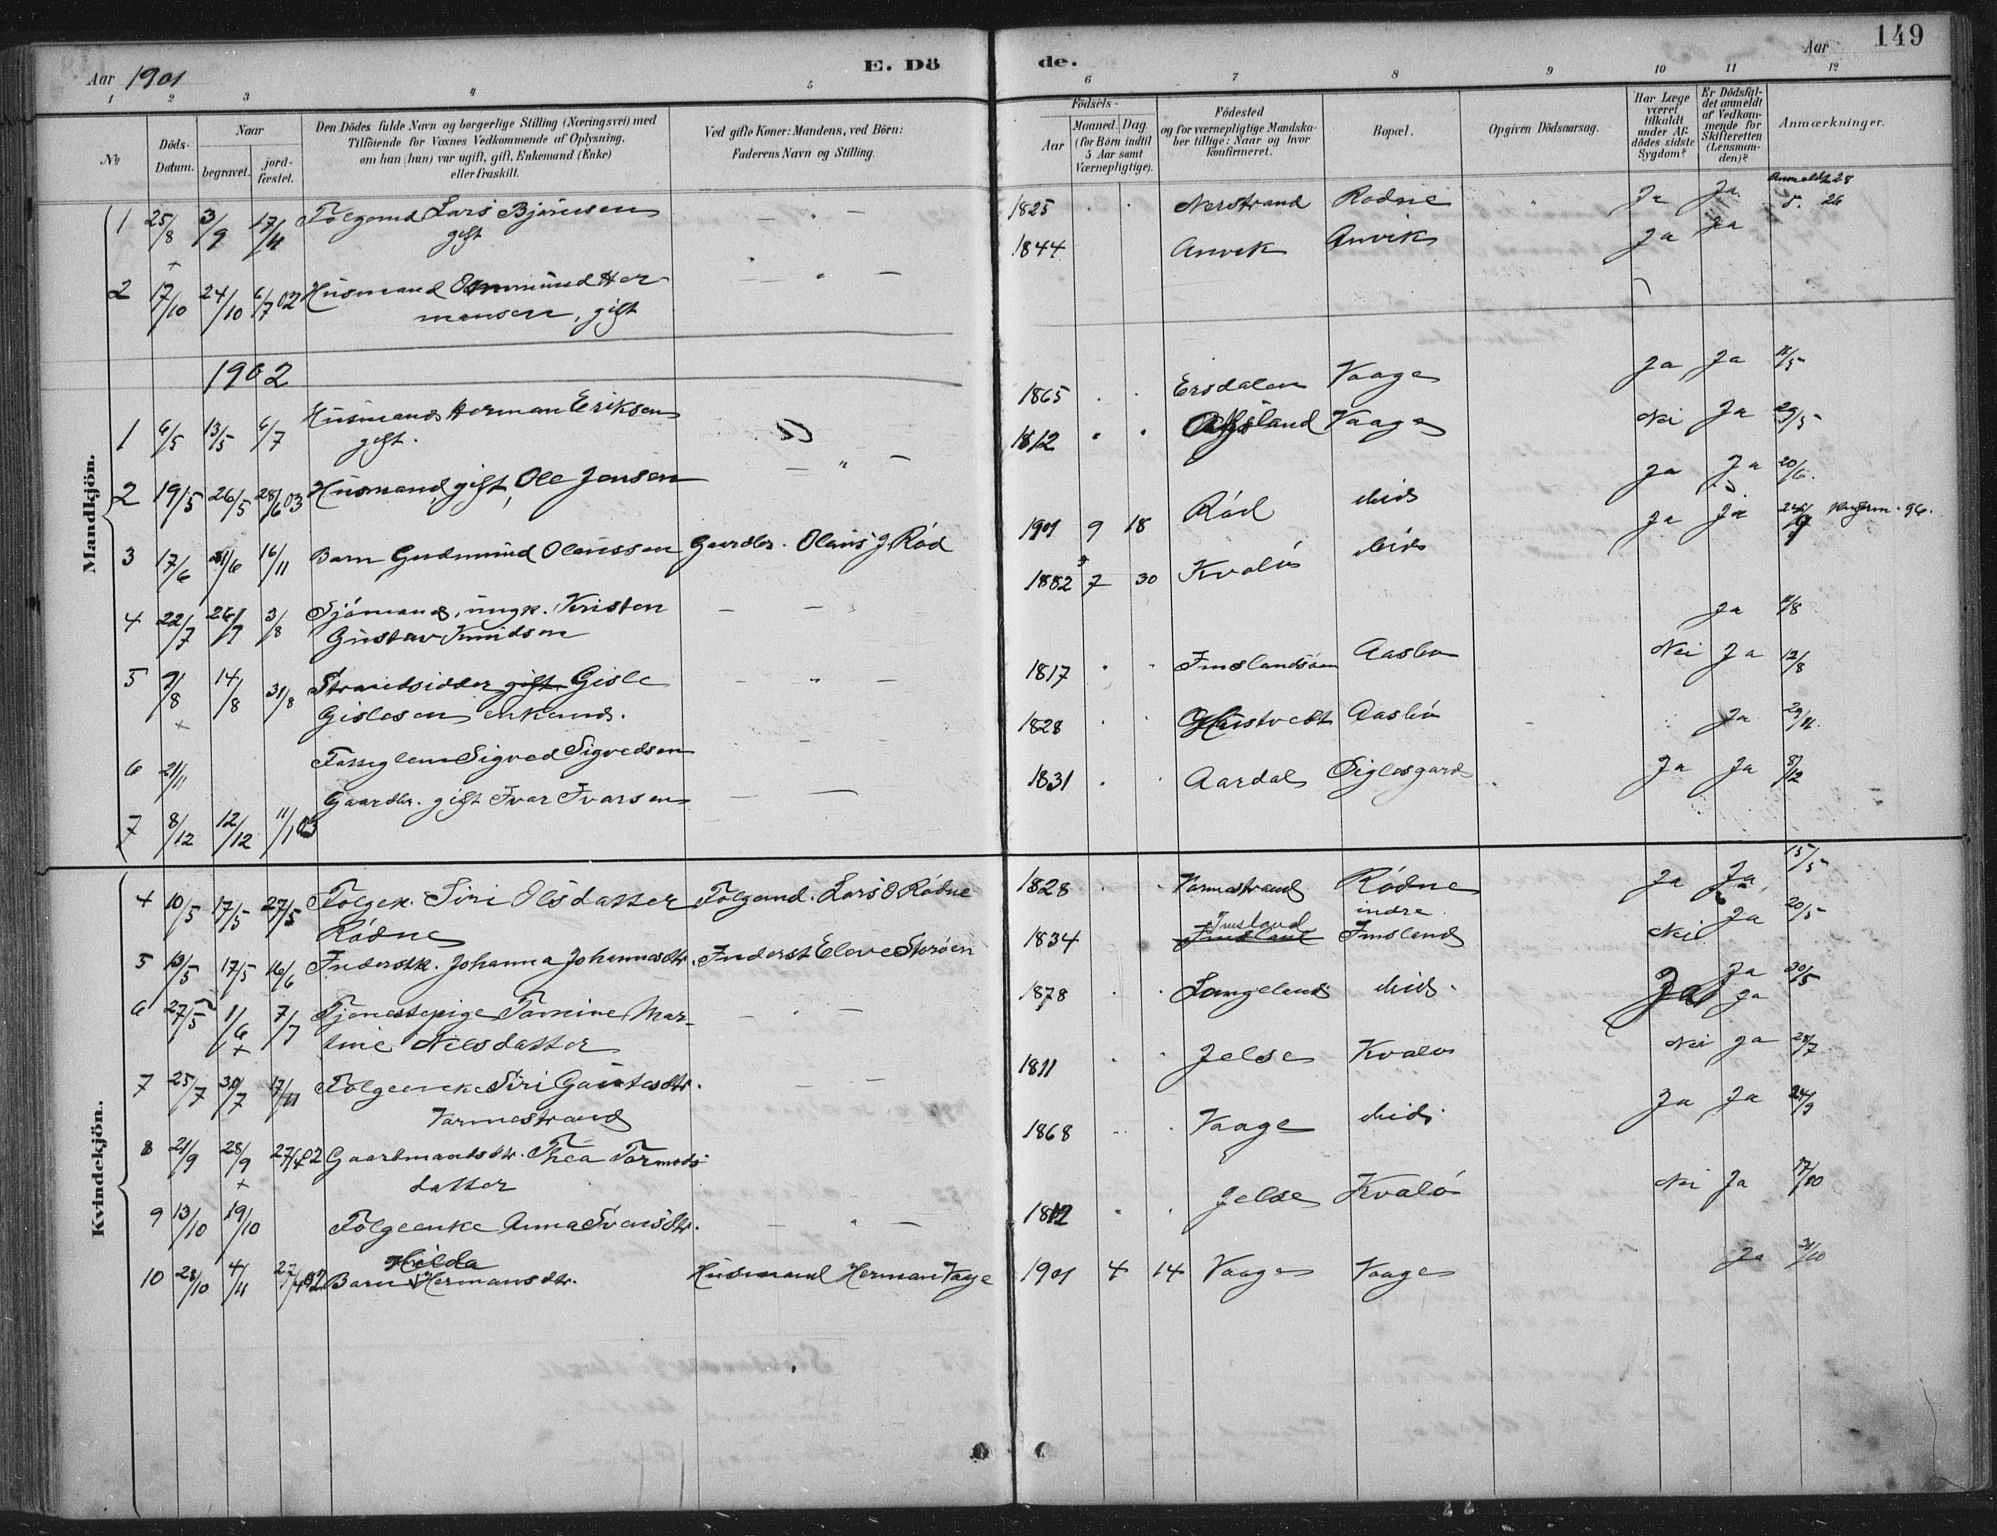 Aar 1901
E. Dö
de.
Aar
149
1 2 3 4 5
6 7 8 9 10 11 12
№
Döds-Datum.
Naar
begravet.
jord-fæstet.
Den Dödes fulde Navn og borgerlige Stilling (Næringsvei) med
Tilföiende for Voxnes Vedkommende af Oplysning,
om han (hun) var ugift, gift, Enkemand (Enke)
eller fraskilt.
Ved gifte Koner: Mandens, ved Börn:
Faderens Navn og Stilling.
Födsels-
Aar
Maaned. Dag.
(for Börn indtil
5 Aar samt
Værnepligtige).
Födested
og for værnepligtige Mandska-
ber tillige: Naar og hvor
konfirmeret.
Bopæl.
Opgiven Dödsaarsag.
Har Læge
været
tilkaldt
under Af-
dödes sidste
Sygdom?
Er Dödsfal-
det anmeldt
af Vedkom-
mende for
Skifteretten
(Lensman-
den)?
Anmærkninger.
Mandkjön.
1 25/8 3/9 17/11 Fölgemd Lars Bjørnsen
gift
1825 Nerstrand Rødne Ja Ja
2 17/10 24/10 6/7 02 Husmand Ommund Her-
mansen, gift
1844 Anvik Anvik Ja Ja
1902
1 6/5 13/5 6/7 Husmand Herman Eriksen
gift.
1865 Ersdalen Vaage Ja Ja 11/5
2 19/5 26/5 28/6 03 Husmand, gift, Ole Jensen
1812 Vaage Nei Ja 29/5
3 17/6 21/6 16/11 Barn Gudmund Olaussen Gaardbr. Olaus J Rød
1901 9 18 Rød ibid Ja Ja 20/6
4 22/7 26/7 3/8 Sjömand, ungk. Kristen
Gustav Knudsen
1882 7 30 Kvalø ibid Ja Ja Konfirm. 96.
5 9/8 14/8 31/8 Strandsidder gift Gisle
Gislesen enkemd.
1817 Imslandsøen Aasbø Nei Ja 12/8
6 21/11 Sigved Sigvedsen
1828 Aasbø Ja 29/11
7 8/12 12/12 11/1 03 Gaardbr. gift Ivar Ivarsen
1831 Aardal Siglesgard Ja Ja 8/12
Kvindekjön.
4 10/5 17/5 27/5 Fölgek. Siri Olsdatter Fölgemd. Lars O Rødne
Rødne
1828 Varmestrand Rødne
indre
Ja Ja 15/5
5 13/5 17/5 16/6 Inderstk. Johanna Johannesdtr. Inderst Elove Storøen
1834 Imsland Imsland Nei Ja 20/5
6 27/5 1/6 7/7 Tjenestepige Tomine Mar-
tine Nilsdatter
1878 Langeland ibid. Ja Ja 30/5
7 25/7 30/7 17/11 Fölgeenke Siri Gautesdtr.
Varmestrand
1811 Jelse Kvalø Nei Ja 28/7
8 21/9 28/9 27/4 02 Gaardmandsdtr. Thea Tormods-
datter
1868 Vaage ibid. Ja Ja 24/9
9 13/10 19/10 Fölgeenke Anna Svensdtr.
1812 Jelse Kvalø Nei Ja 17/10
Hilda
10 28/10 4/11 27/4 02 Barn Hermansdtr. Husmand Herman Vage
1901 4 14 Vaage Vaage Ja 31/10